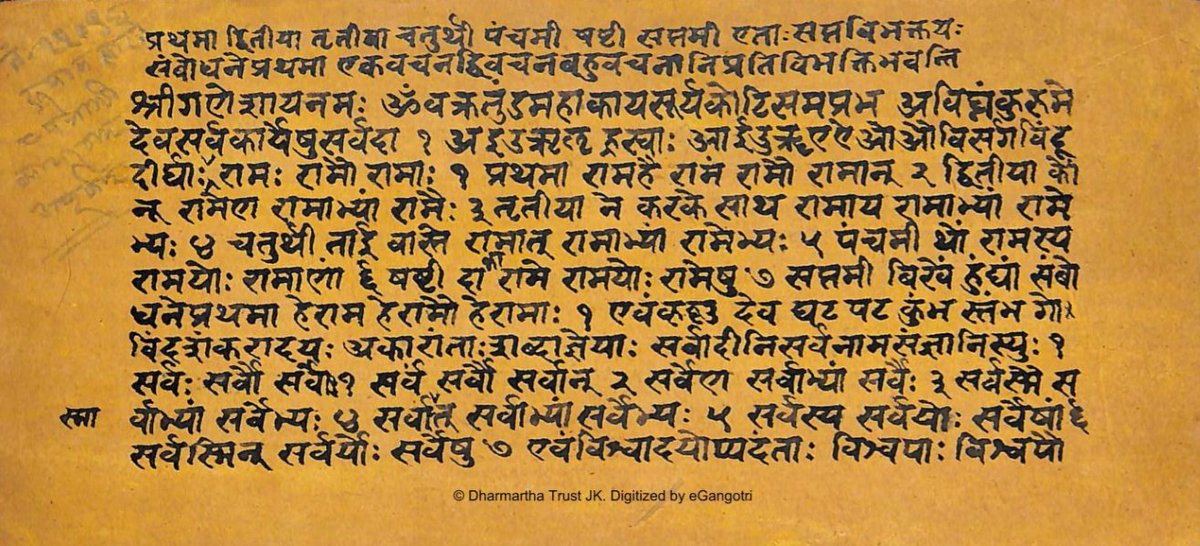 प्रथमा द्वितीया तृतीया चतुर्थी पंचमी षष्टी सप्तमी एताः सप्तविभक्तयः
संबोधनेप्रथमा एकवचनद्विवचनबहुवचनानिप्रतिविभक्तिभवन्ति
श्रीगणेशायनमः ॐवक्रतुंडमहाकायसूर्यकोटिसमप्रभ अविघ्नंकुरुमे
देवसर्वकार्येषुसर्वदा १ अइउऋऌ ह्रस्वाः आईऊॠएऐओऔविसर्गबिंदु
दीर्घाः रामः रामौ रामाः १ प्रथमा रामहै रामं रामौ रामान् २ द्वितीया कौ
न् रामेण रामाभ्यां रामैः ३ तृतीया न करकै साथ रामाय रामाभ्यां रामे
भ्यः ४ चतुर्थी तांई वास्ते रामात् रामाभ्यां रामेभ्यः ५ पंचमी थों रामस्य
रामयोः रामाणां ६ षष्टी दा रामे रामयोः रामेषु ७ सप्तमी बिखै संबो
धनेप्रथमा हेराम हेरामौ हेरामाः १ एवंकृष्ण देव घट पट कुंभ स्तंभ गो
विंदशकरादयः अकारांताःशब्दाज्ञेयाः सर्वादीनिसर्वनामसंज्ञानिस्युः १
सर्वः सर्वौ सर्वे १ सर्वं सर्वौ सर्वान् २ सर्वेण सर्वाभ्यां सर्वैः ३ सर्वस्मै स
स्मा र्वाभ्यां सर्वेभ्यः ४ सर्वात् सर्वाभ्यां सर्वेभ्यः ५ सर्वस्य सर्वयोः सर्वेषां ६
सर्वस्मिन् सर्वयोः सर्वेषु ७ एवंविश्वादयोप्यदंताः विश्वपाः विश्वपौ
© Dharmartha Trust JK. Digitized by eGangotri